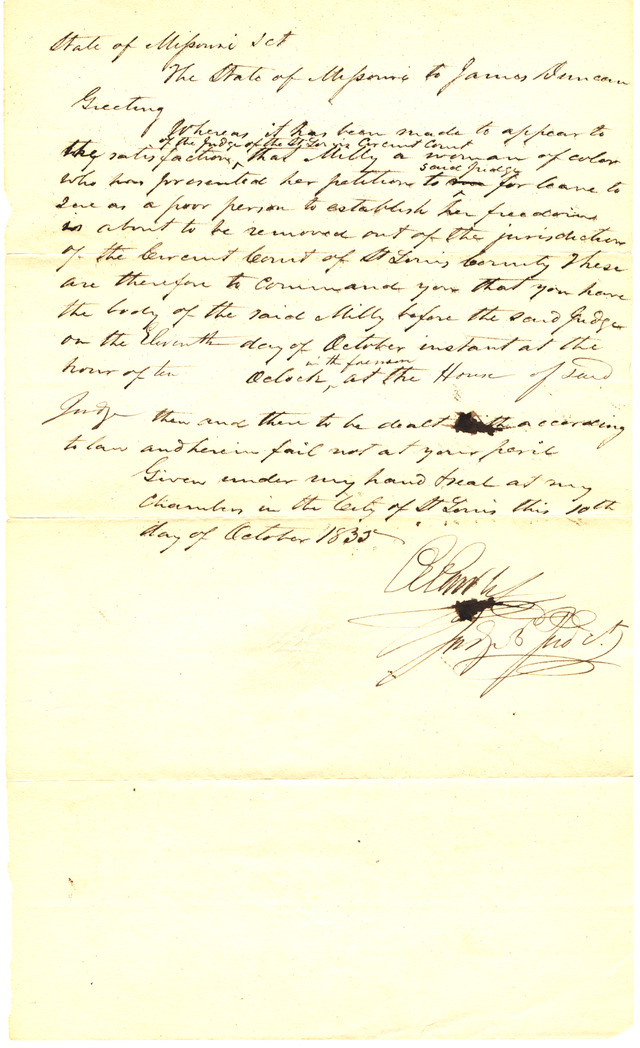 State of Missouri Sct
The State of Missouri to James Duncan
Greeting
Whereas it has been made to appear to
of the Judge of the St Louis Circuit Court
the satisfaction, that Milly a woman of color
said Judge
who has presented her petition to for leave to
sue as a poor person to establish her freedom
is about to be removed out of the jurisdiction
of the Circuit Court of St Louis County These
are therefore to command you that you have
the body of the said Milly before the said Judge
on the Eleventh day of October instant at the
in the forenoon
hour of ten Oclock, at the House of said
Judge then and there to be dealt with according
to law and herein fail not at your peril
Given under my hand & seal at my
Chambers in the City of St Louis this 10th
day of October 1835
Judge 3 Jud Ct.